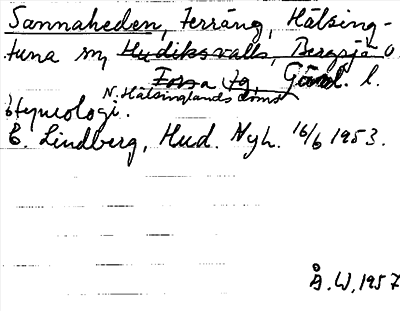 Sannaheden, terräng, Hälsing-
tuna sn, Hudiksvalls, Bergsjö o
Forsa tg, Gävl. l.
N. Hälsinglands doms
Etymologi.
E. Lindberg, Hud. Nyh. 16/6 1953.
Å.W. 1957